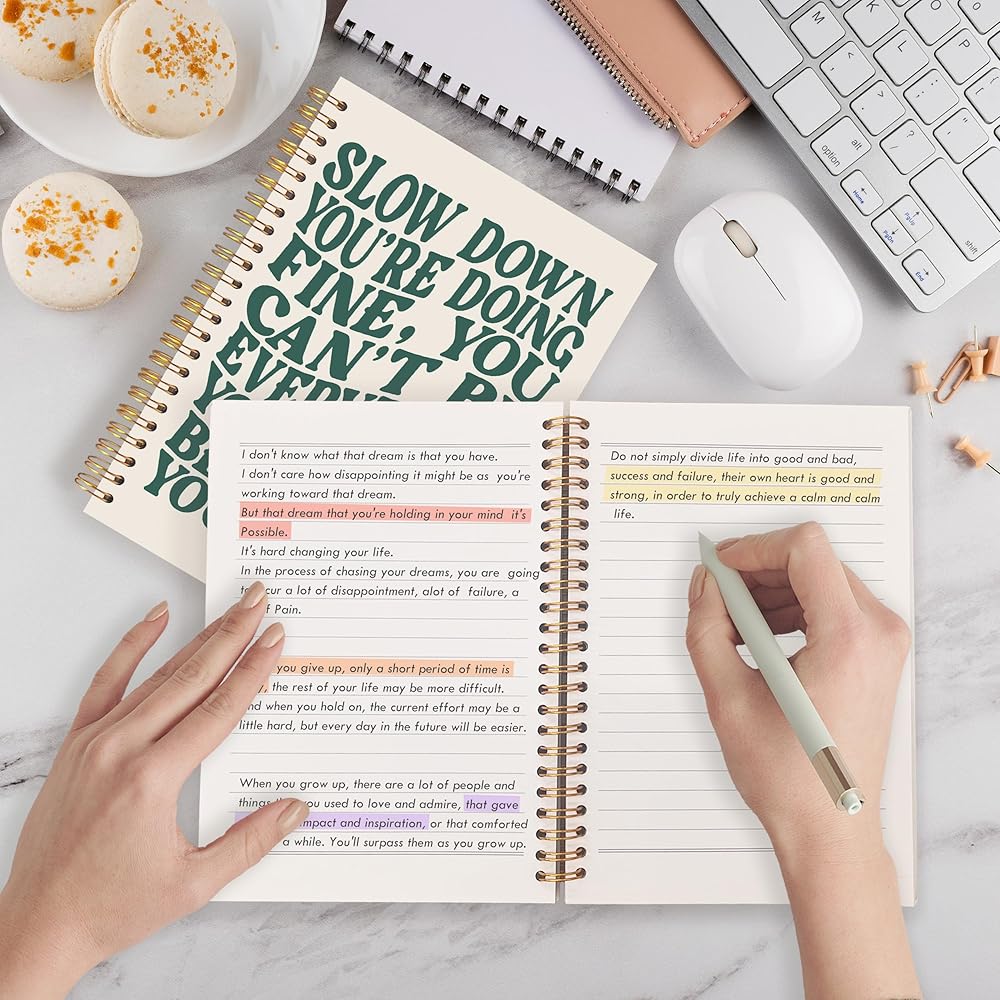 SLOW DOWN
YOU'RE DOING
FINE, YOU
CAN'T
I don't know what that dream is that you have.
I don't care how disappointing it might be as you're
working toward that dream.
But that dream that you're holding in your mind it's
Possible.
It's hard changing your life.
In the process of chasing your dreams, you are going
a lot of disappointment, alot of failure, a
Pain.
you give up, only a short period of time is
the rest of your life may be more difficult.
when you hold on, the current effort may be a
little hard, but every day in the future will be easier.
When you grow up, there are a lot of people and
you used to love and admire, that gave
impact and inspiration, or that comforted
a while. You'll surpass them as you grow up.
Do not simply divide life into good and bad,
success and failure, their own heart is good and
strong, in order to truly achieve a calm and calm
life.
M
K
L
O
P
alt
option
shift
Home
PgUp
PgDn
End